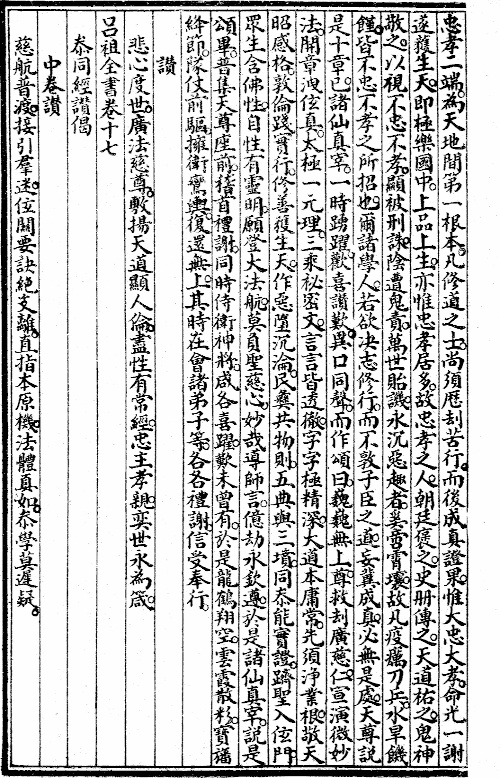 忠孝二端。為天地間第一根本。凡修道之士。尚須歷刦苦行。而後成真證果。惟大忠大孝。命光一謝
遂獲生天。即極樂國中。上品上生。亦惟忠孝居多。故忠孝之人。朝廷褒之。史册傳之。天道祐之。鬼神
敬之。以視不忠不孝。顯被刑誅。陰遭鬼責。萬世貽譏。永沉惡趣者。奚啻霄壤。故凡疫癘刀兵。水旱饑
饉。皆不忠不孝之所招也。爾諸學人。若欲决志修行。而不敦子臣之道。妄冀成真。必無是處。天尊說
是十章已。諸仙真宰。一時踴躍。歡喜讃歎。異口同聲。而作頌曰。巍巍無上尊。救刦廣慈仁。宣演微妙
法。開章洩伭真。太極一元理。三乘秘密文。言言皆透徹。字字極精深。大道本庸常。先須淨業根。敬天
昭感格。敦倫踐實行。修善獲生天。作惡墮沉淪。民彝共物則。五典與三墳。同泰能實證。躋聖入伭門
眾生含佛性。自性有靈明。願登大法航。莫負聖慈心。妙哉導師言。億劫永欽遵。於是諸仙真宰。說是
頌畢。普集天尊座前。稽首禮謝。同時侍衛神將。咸各喜躍。歎未曾有。於是龍鶴翔空。雲霞散彩。寶旛
絳節。隊仗前驅。擁衛鸞輿。復還無上。其時在會諸弟子等。各各禮謝。信受奉行。
讃
悲心度世。廣法慈尊。敷揚天道顯人倫。盡性有常經。忠主孝親。奕世永為箴
呂祖全書卷十七
泰同經讃偈
中卷讃
慈航普渡。接引羣迷。伭關要訣絕支離。直指本原機。法體真如。泰學莫遲疑。